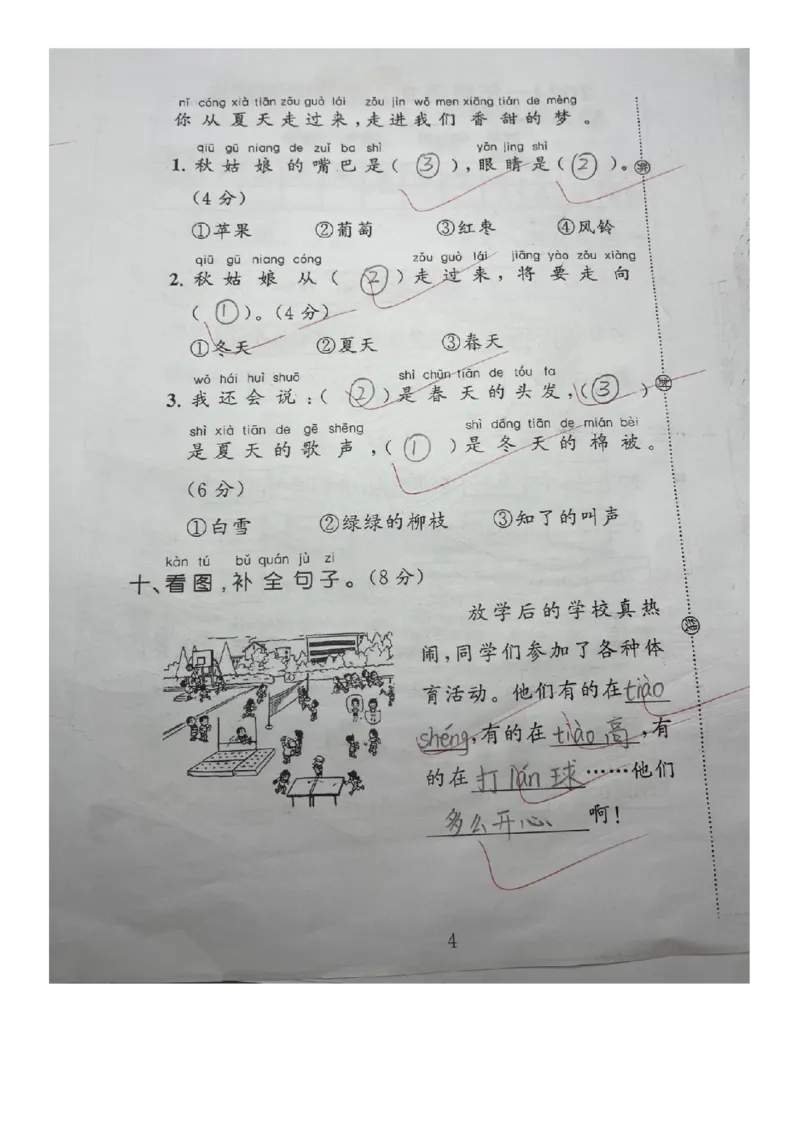 nǐ cóng xià tiān zǒu guò lái zǒu jìn wǒ men xiāng tián de mèng
你从夏天走过来,走进我们香甜的梦。
qiū gū niang de zuǐ ba shì yǎn jing shì
1. 秋姑娘的嘴巴是( ③ ),眼睛是( ② )。
(4分)
①苹果 ②葡萄 ③红枣 ④风铃
qiū gū niang cóng zǒu guò lái jiāng yào zǒu xiàng
2. 秋姑娘从( ② )走过来,将要走向
( ① )。(4分)
①冬天 ②夏天 ③春天
wǒ hái huì shuō shì chūn tiān de tóu fa
3. 我还会说:( ② )是春天的头发,( ③ )
shì xià tiān de gē shēng shì dōng tiān de mián bèi
是夏天的歌声,( ① )是冬天的棉被。
(6分)
①白雪 ②绿绿的柳枝 ③知了的叫声
kàn tú bǔ quán jù zi
十、看图,补全句子。(8分)
放学后的学校真热
闹,同学们参加了各种体
育活动。他们有的在tiào
shéng,有的在tiào高,有
的在打lán球……他们
多么开心啊!
4